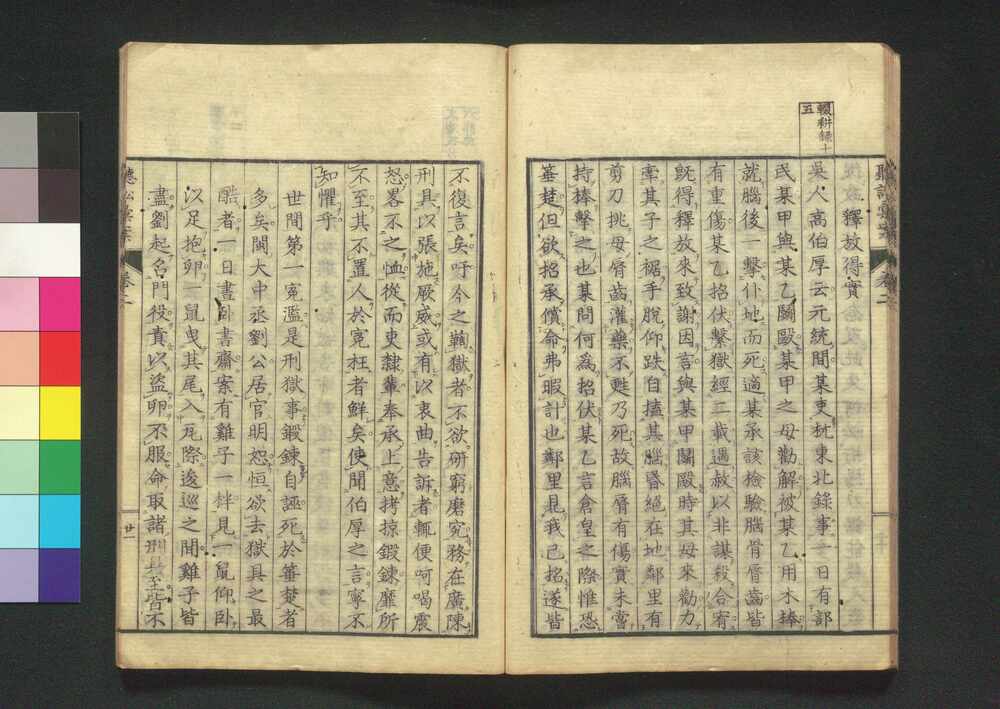 輟耕録十
五
釋放得實
吳人高伯厚云元統間某吏杭東北錄事一日有部
民某甲與某乙鬭毆某甲之母勸解被某乙用木棒
就腦後一擊仆地而死適某承該檢驗腦骨脣齒皆
有重傷某乙招伏繫獄經二載遇赦以非謀殺合宥
既得釋放來致謝因言與某甲鬭毆時其母來勸力
牽其子之裾手脫仰跌自搕其腦昏絕在地鄰里有
剪刀挑母脣齒灌藥不甦乃死故腦脣有傷實未嘗
持捧擊之也某問何為招伏某乙言倉皇之際惟恐
箠楚但欲招承償命弗暇計也鄰里見我已招遂皆
不復言矣吁今之鞫獄者不欲研窮磨究務在廣陳
刑具以張施厥威或有以衷曲告訴者輒便呵喝震
怒畧不之恤從而吏隸輩奉承上意拷掠鍛鍊靡所
不至其不置人於冤枉者鮮矣使聞伯厚之言寧不
知懼乎
世間第一冤濫是刑獄事鍛鍊自誣死於箠楚者
多矣閩大中丞劉公居官明恕恒欲去獄具之最
酷者一日晝卧書齋案有雞子一柈見一鼠仰卧
以足抱卵一鼠曳其尾入瓦際逡巡之間雞子皆
盡劉起名門役責以盜卵不服命取諸刑具至皆不
聽訟彙案
卷二
廿一